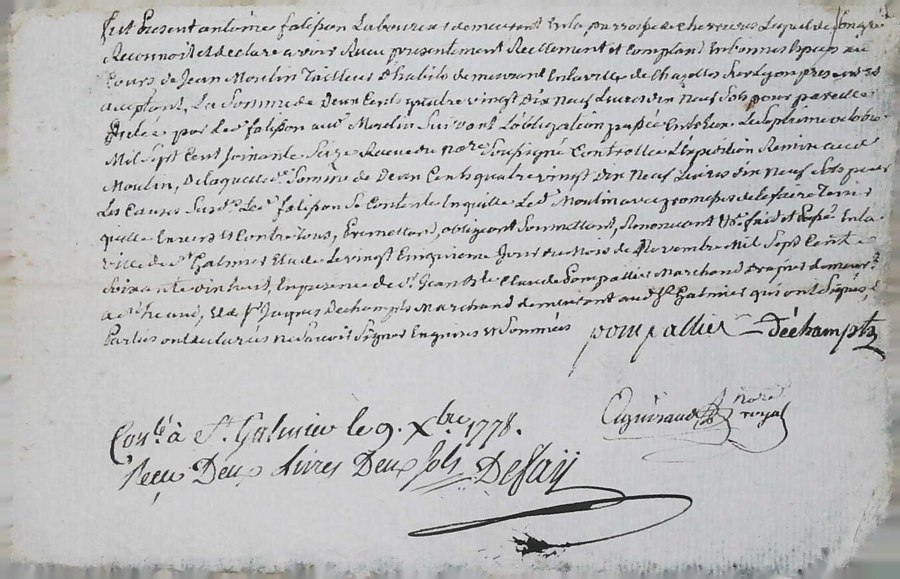 fut Present antoine falison Laboureur demeurant En la parroisse de chevrieres Lequel de son gré
Reconnoit et declare avoir Recu presentement Reellement et Comptant En bonnes Especes au
Cours de Jean Moulin Tailleur d'habits demeurant En la ville de Chazelles sur Lyon present et
acceptant, La Somme de Deux Cents quatre vingt Dix Neuf Livres dix neuf Sols pour pareille
par Led. falison aud. Moulin Suivant L'obligation passée Entr'eux Le Septieme octobre
Mil Sept Cent soixante Seize Recue du no.re Soussigné Controllée Expedition Remise aud.
Moulin, De laquelle d. Somme de Deux Cents quatre vingt dix Neuf Livres dix neuf Sols pour
Les Causes Susd. Led. falison Se Contente En quitte Led. Moulin avec promesse de le faire Tenir
quitte Envers Et Contre tous, Promettant, obligeant Soumettant, Renoncant &c. fait et Passé En la
ville de St. Galmier Etude Le vingt Cinquieme Jour du Mois de Novembre Mil Sept Cent
Soixante dix huit, En presence de Sr. Jean Claude Pompallier Marchand Drapier demeurt.
Et de Sr. Jaques Dechampts Marchand demeurant aud. St. Galmier qui ont Signés,
Parties ont declarés ne Savoir Signer Enquises Et Sommées
pompallier Déchampts
nore
royal
Conlé. à St. Galmier le 9. Xbre 1778.
Reçu Deux Livres Deux Sols Defay